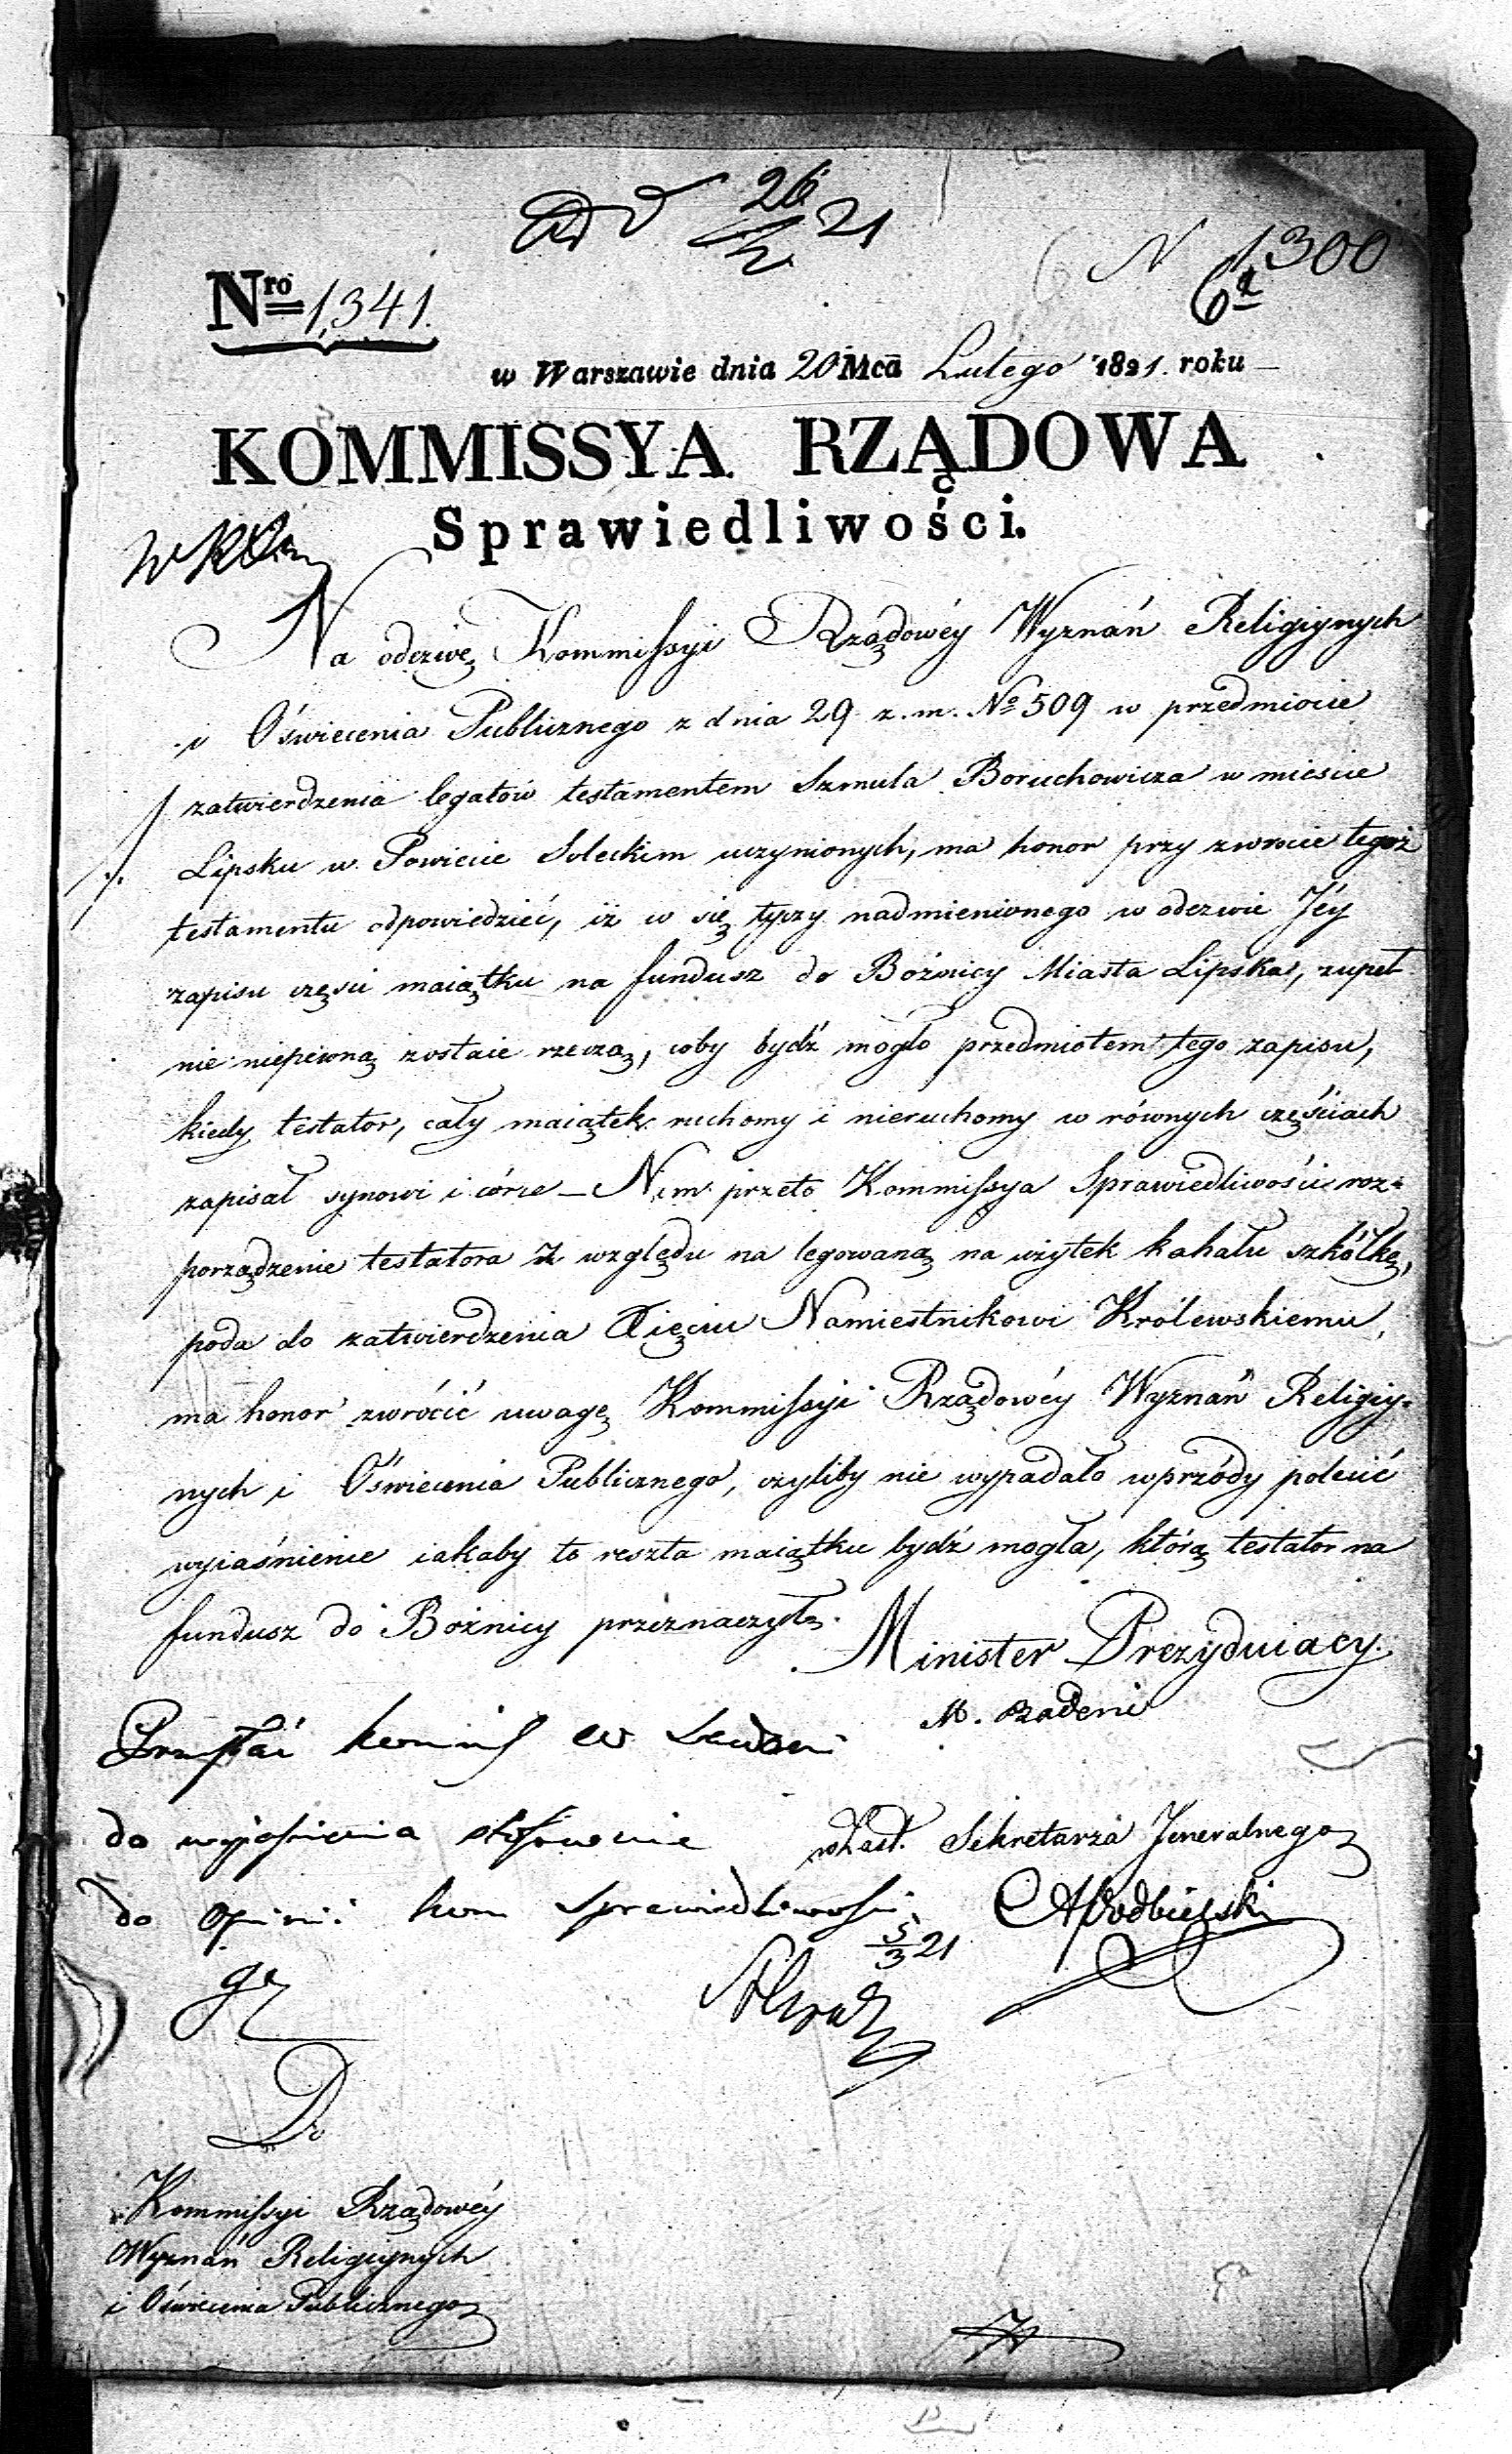 26/2 21
N 1300
6
Nro 1,341.
w Warszawie dnia 20 Mca Lutego 1821. roku
KOMMISSYA RZĄDOWA
Sprawiedliwości.
Na odezwę Kommissyi Rządowéy Wyznań Religiynych
i Oświecenia Publicznego z dnia 29 z. m. No 509 w przedmiocie
zatwierdzenia legatów testamentem Szmula Boruchowicza w mieście
Lipsku w Powiecie Soleckim uczynionych, ma honor przy zwrocie tegoż
testamentu odpowiedzieć, iż w się tyczy nadmienionego w odezwie Jéy
zapisu części maiątku na fundusz do Bożnicy Miasta Lipska, zupeł
nie niepewną zostaie rzeczą, coby bydź mogło przedmiotem tego zapisu,
kiedy testator, cały maiątek ruchomy i nieruchomy w równych częściach
zapisał synowi i córce – Nim przeto Kommissya Sprawiedliwości roz=
porządzenie testatora z względu na legowaną na użytek kahału szkółkę,
poda do zatwierdzenia Xięciu Namiestnikowi Królewskiemu,
ma honor zwrócić uwagę Kommissyi Rządowéy Wyznań Religiy=
nych i Oświecenia Publicznego, czyliby nie wypadało wprzódy polecić
wyiaśnienie iakaby to reszta maiątku bydź mogła, którą testator na
fundusz do Bożnicy przeznaczył.
Minister Prezyduiacy.
M. Badeni
do wyjaśnienia stosownie
w Zast. Sekretarza Jeneralnego
do opinii kom Sprawiedliwości
Podbielski
5/3 21
Do
Kommissyi Rządowéy
Wyznań Religiynych
i Oświecenia Publicznego